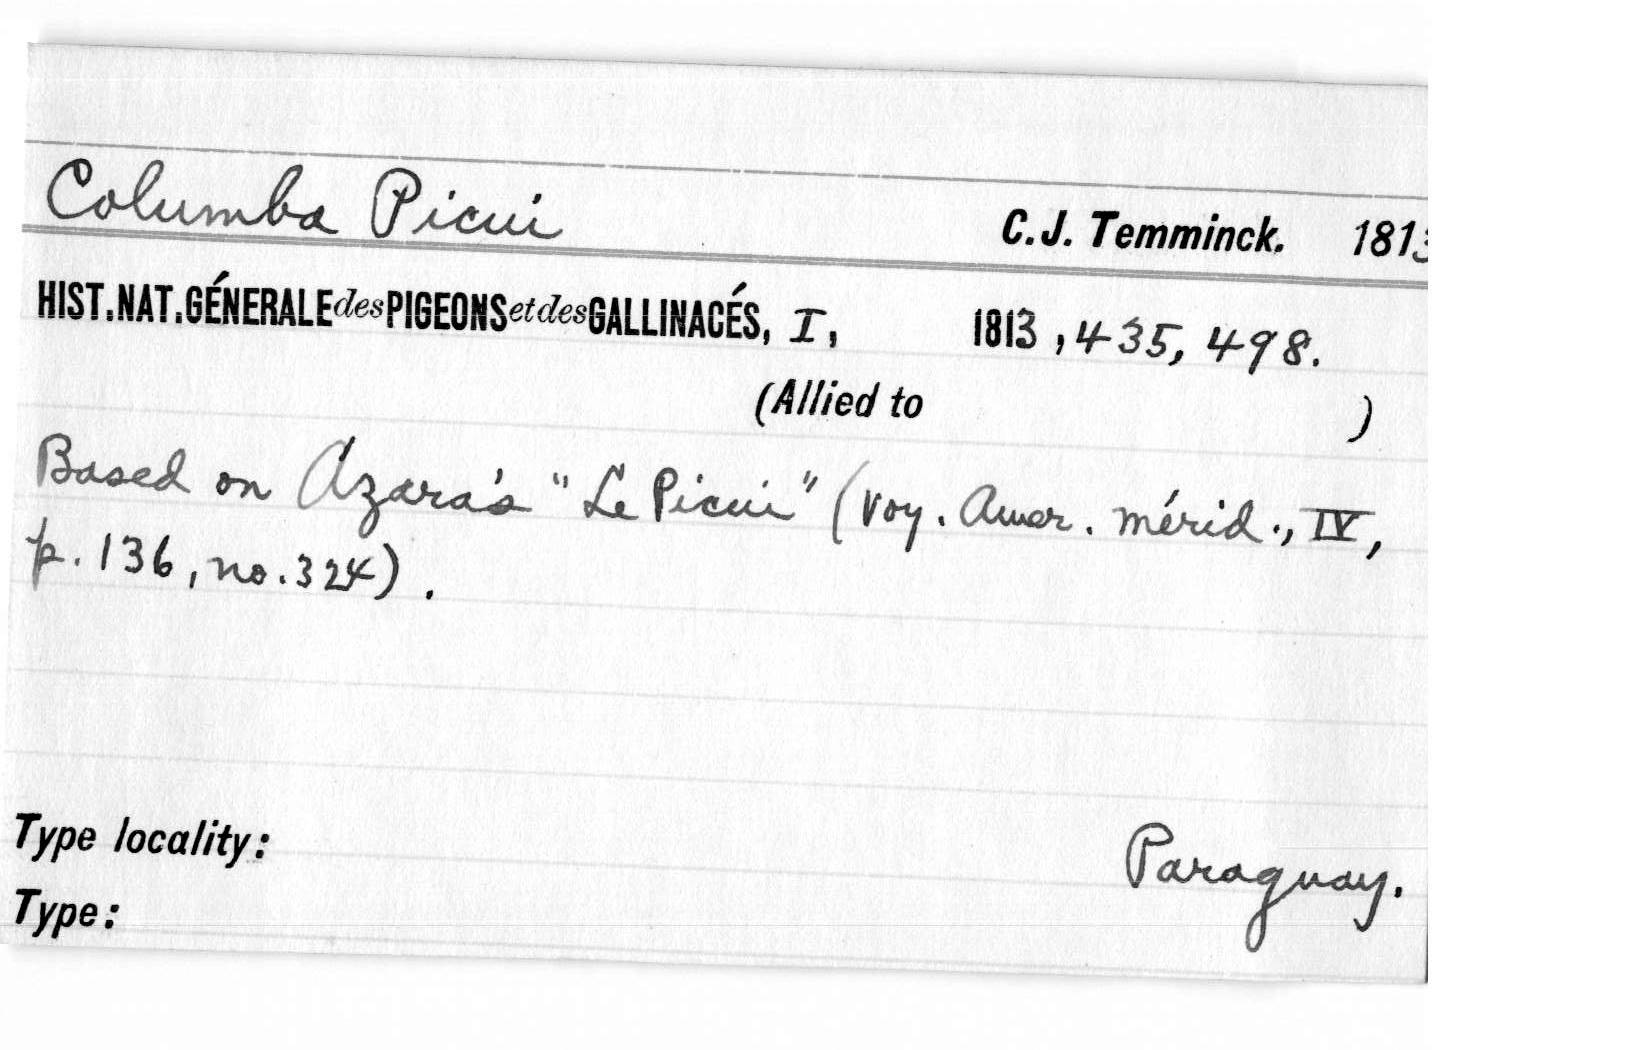 Columba Picui C.J. Temminck. 1813
HIST.NAT.GÉNERALE des PIGEONS et des GALLINACÉS, I, 1813, 435, 498.
(Allied to )
Based on Azara's "Le Picui" (Voy. Amer. mérid., IV,
p. 136, no. 324).
Type locality: Paraguay.
Type: